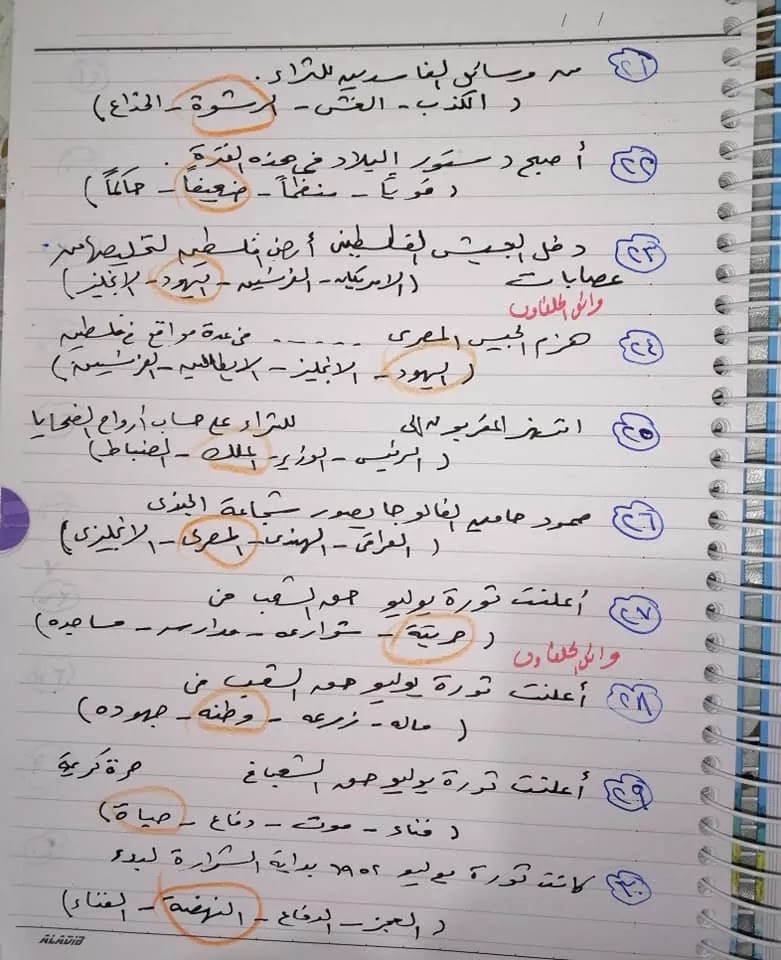 / /
٢١ من وسائل الفاسدين للثراء.
( الكذب - الغش - الرشوة - الخداع )
٢٢ أصبح دستور البلاد في هذه الفترة .
( قوياً - منظماً - ضعيفاً - حاكماً )
٢٣ دخل الجيش الفلسطينى أرض فلسطين لتخليصها من
عصابات ( الامريكان - الفرنسيين - اليهود - الانجليز )
وائل الحلفاوى
٢٤ هزم الجيش المصرى ...... فى عدة مواقع فى فلسطين
( اليهود - الانجليز - الايطاليين - الفرنسيين )
٢٥ انتهز المقربون إلى للثراء على حساب أرواح الضحايا
( الرئيس - الوزير - الملك - الضباط )
٢٦ صمود حامية الفالوجا يصور شجاعة الجندى
( العراقى - الهندى - المصرى - الانجليزى )
٢٧ أعلنت ثورة يوليو حق الشعب فى
( حريته - شوارعه - مدارسه - مساجده )
وائل الحلفاوى
٢٨ أعلنت ثورة يوليو حق الشعب فى
( ماله - زرعه - وطنه - جهوده )
٢٩ أعلنت ثورة يوليو حق الشعب فى حرة كريمة
( فناء - موت - دفاع - حياة )
٣٠ كانت ثورة يوليو ١٩٥٢ بداية الشرارة لبدء
( العجز - الدفاع - النهضة - الفناء )